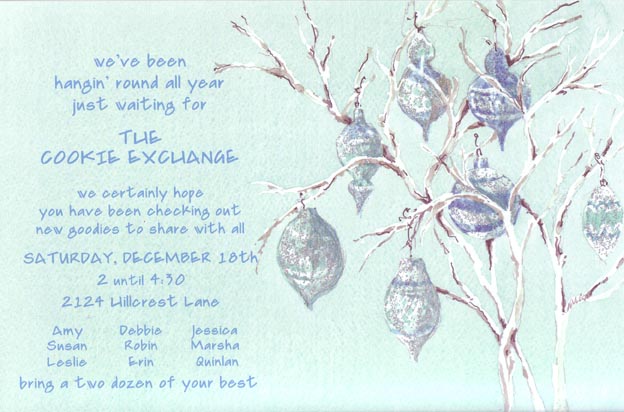 we've been
hangin' round all year
just waiting for
THE
COOKIE EXCHANGE
we certainly hope
you have been checking out
new goodies to share with all
SATURDAY, DECEMBER 18th
2 until 4:30
2124 Hillcrest Lane
Amy Debbie Jessica
Susan Robin Marsha
Leslie Erin Quinlan
bring a two dozen of your best